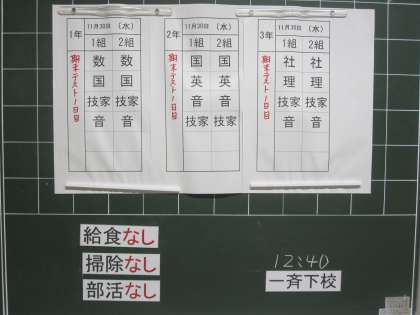 1年 11月30日 (水)
1組 2組
期末テスト1日目
数 数
国 国
技家 技家
音 音
2年 11月30日 (水)
1組 2組
期末テスト1日目
国 国
英 英
音 音
技家 技家
3年 11月30日 (水)
1組 2組
期末テスト1日目
社 社
理 理
技家 技家
音 音
給食なし
掃除なし
部活なし
12:40
一斉下校